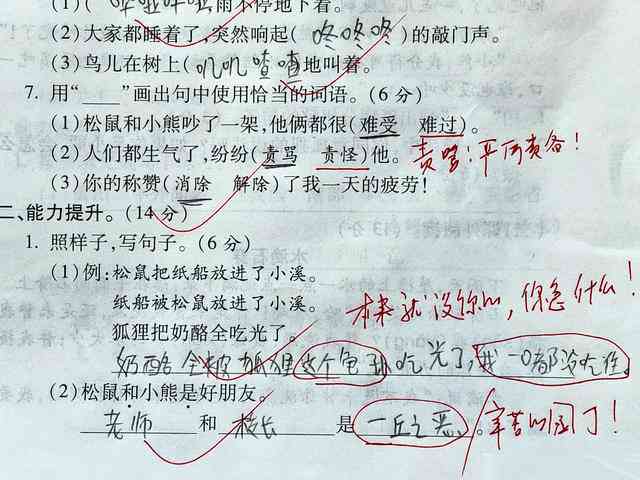 (1)( 哗啦哗啦 雨不停地下着。
(2)大家都睡着了,突然响起( 咚咚咚 )的敲门声。
(3)鸟儿在树上( 叽叽喳喳 地叫着。
7. 用“____”画出句中使用恰当的词语。(6分)
(1)松鼠和小熊吵了一架,他俩都很(难受 难过)。
(2)人们都生气了,纷纷(责骂 责怪)他。 责骂:严厉责备!
(3)你的称赞(消除 解除)了我一天的疲劳!
二、能力提升。(14分)
1. 照样子,写句子。(6分)
(1)例:松鼠把纸船放进了小溪。
纸船被松鼠放进了小溪。
本来就没你的,你急什么!
狐狸把奶酪全吃光了。
奶酪全被狐狸这个龟孙吃光了,我一口都没吃住。
(2)松鼠和小熊是好朋友。
老师 和 校长 是 一丘之恶 。
辛苦的园丁!